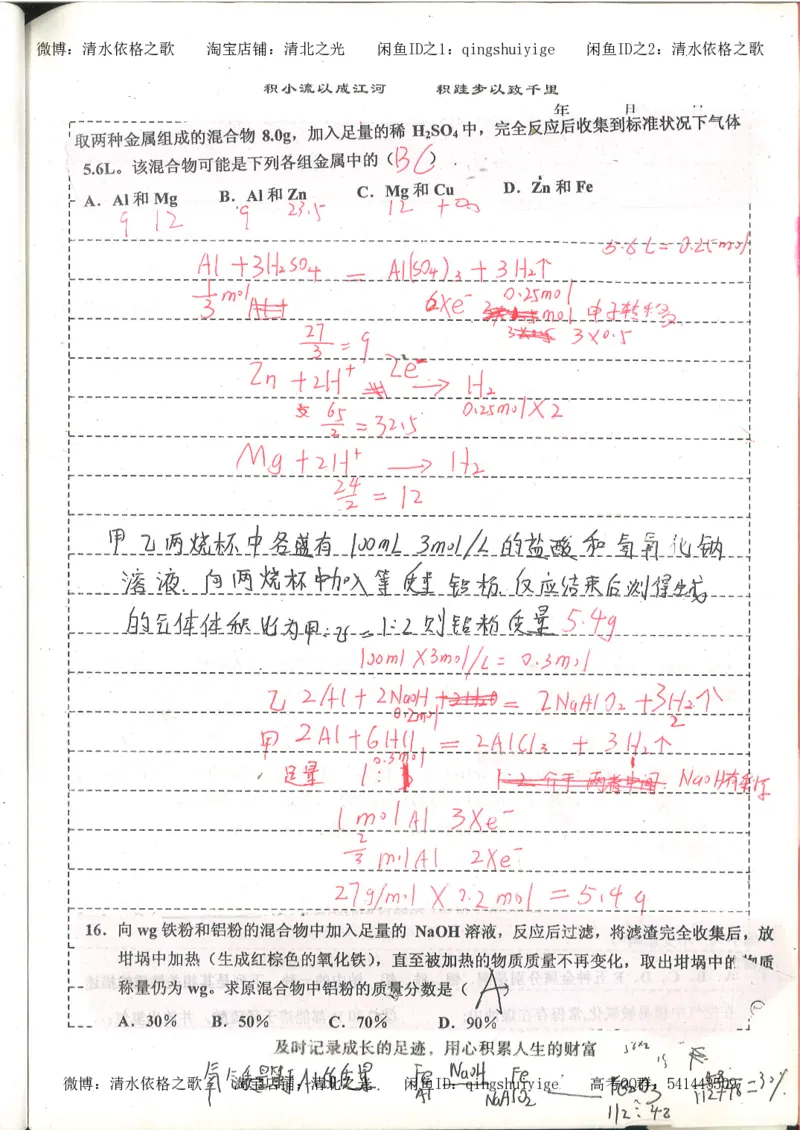 微博：清水依格之歌 淘宝店铺：清北之光 闲鱼ID之1：qingshuiyige 闲鱼ID之2：清水依格之歌
积小流以成江河 积跬步以致千里
年 月
取两种金属组成的混合物 8.0g，加入足量的稀 H₂SO₄ 中，完全反应后收集到标准状况下气体
5.6L。该混合物可能是下列各组金属中的（BC）
A．Al 和 Mg B．Al 和 Zn C．Mg 和 Cu D．Zn 和 Fe
9 12 9 23.5 12 +∞
5.6L = 0.25mol
Al + 3H₂SO₄ = Al(SO₄)₃ + 3H₂↑
1/3 mol 6Xe⁻ 0.25mol
mol 电子转移
27/3 = 9 3×0.5
Zn + 2H⁺ 2e⁻ → H₂
65/2 = 32.5 0.25mol×2
Mg + 2H⁺ → H₂
24/2 = 12
甲乙两烧杯中各盛有 100mL 3mol/L 的盐酸和氢氧化钠
溶液．向两烧杯中加入等质量铝粉．反应结束后测得生成
的气体体积比为甲:乙=1:2 则铝粉质量 5.4g
100ml×3mol/L = 0.3mol
乙 2Al + 2NaOH = 2NaAlO₂ + 3H₂↑
0.2mol 2
甲 2Al + 6HCl = 2AlCl₃ + 3H₂↑
0.3mol 1
足量 1: 1:2 介于两者中间．NaOH有剩余
1 mol Al 3Xe⁻
2/3 mol Al 2Xe⁻
27g/mol × 0.2 mol = 5.4g
16．向 wg 铁粉和铝粉的混合物中加入足量的 NaOH 溶液，反应后过滤，将滤渣完全收集后，放
坩埚中加热（生成红棕色的氧化铁），直至被加热的物质质量不再变化，取出坩埚中的物质
称量仍为 wg。求原混合物中铝粉的质量分数是（A）
A．30% B．50% C．70% D．90%
及时记录成长的足迹，用心积累人生的财富
56×2
微博：清水依格之歌 淘宝店铺：清北之光 闲鱼ID：qingshuiyige 高考QQ群：541443509
Fe Al NaOH Fe NaAlO₂ Fe₂O₃ =30%
112:48